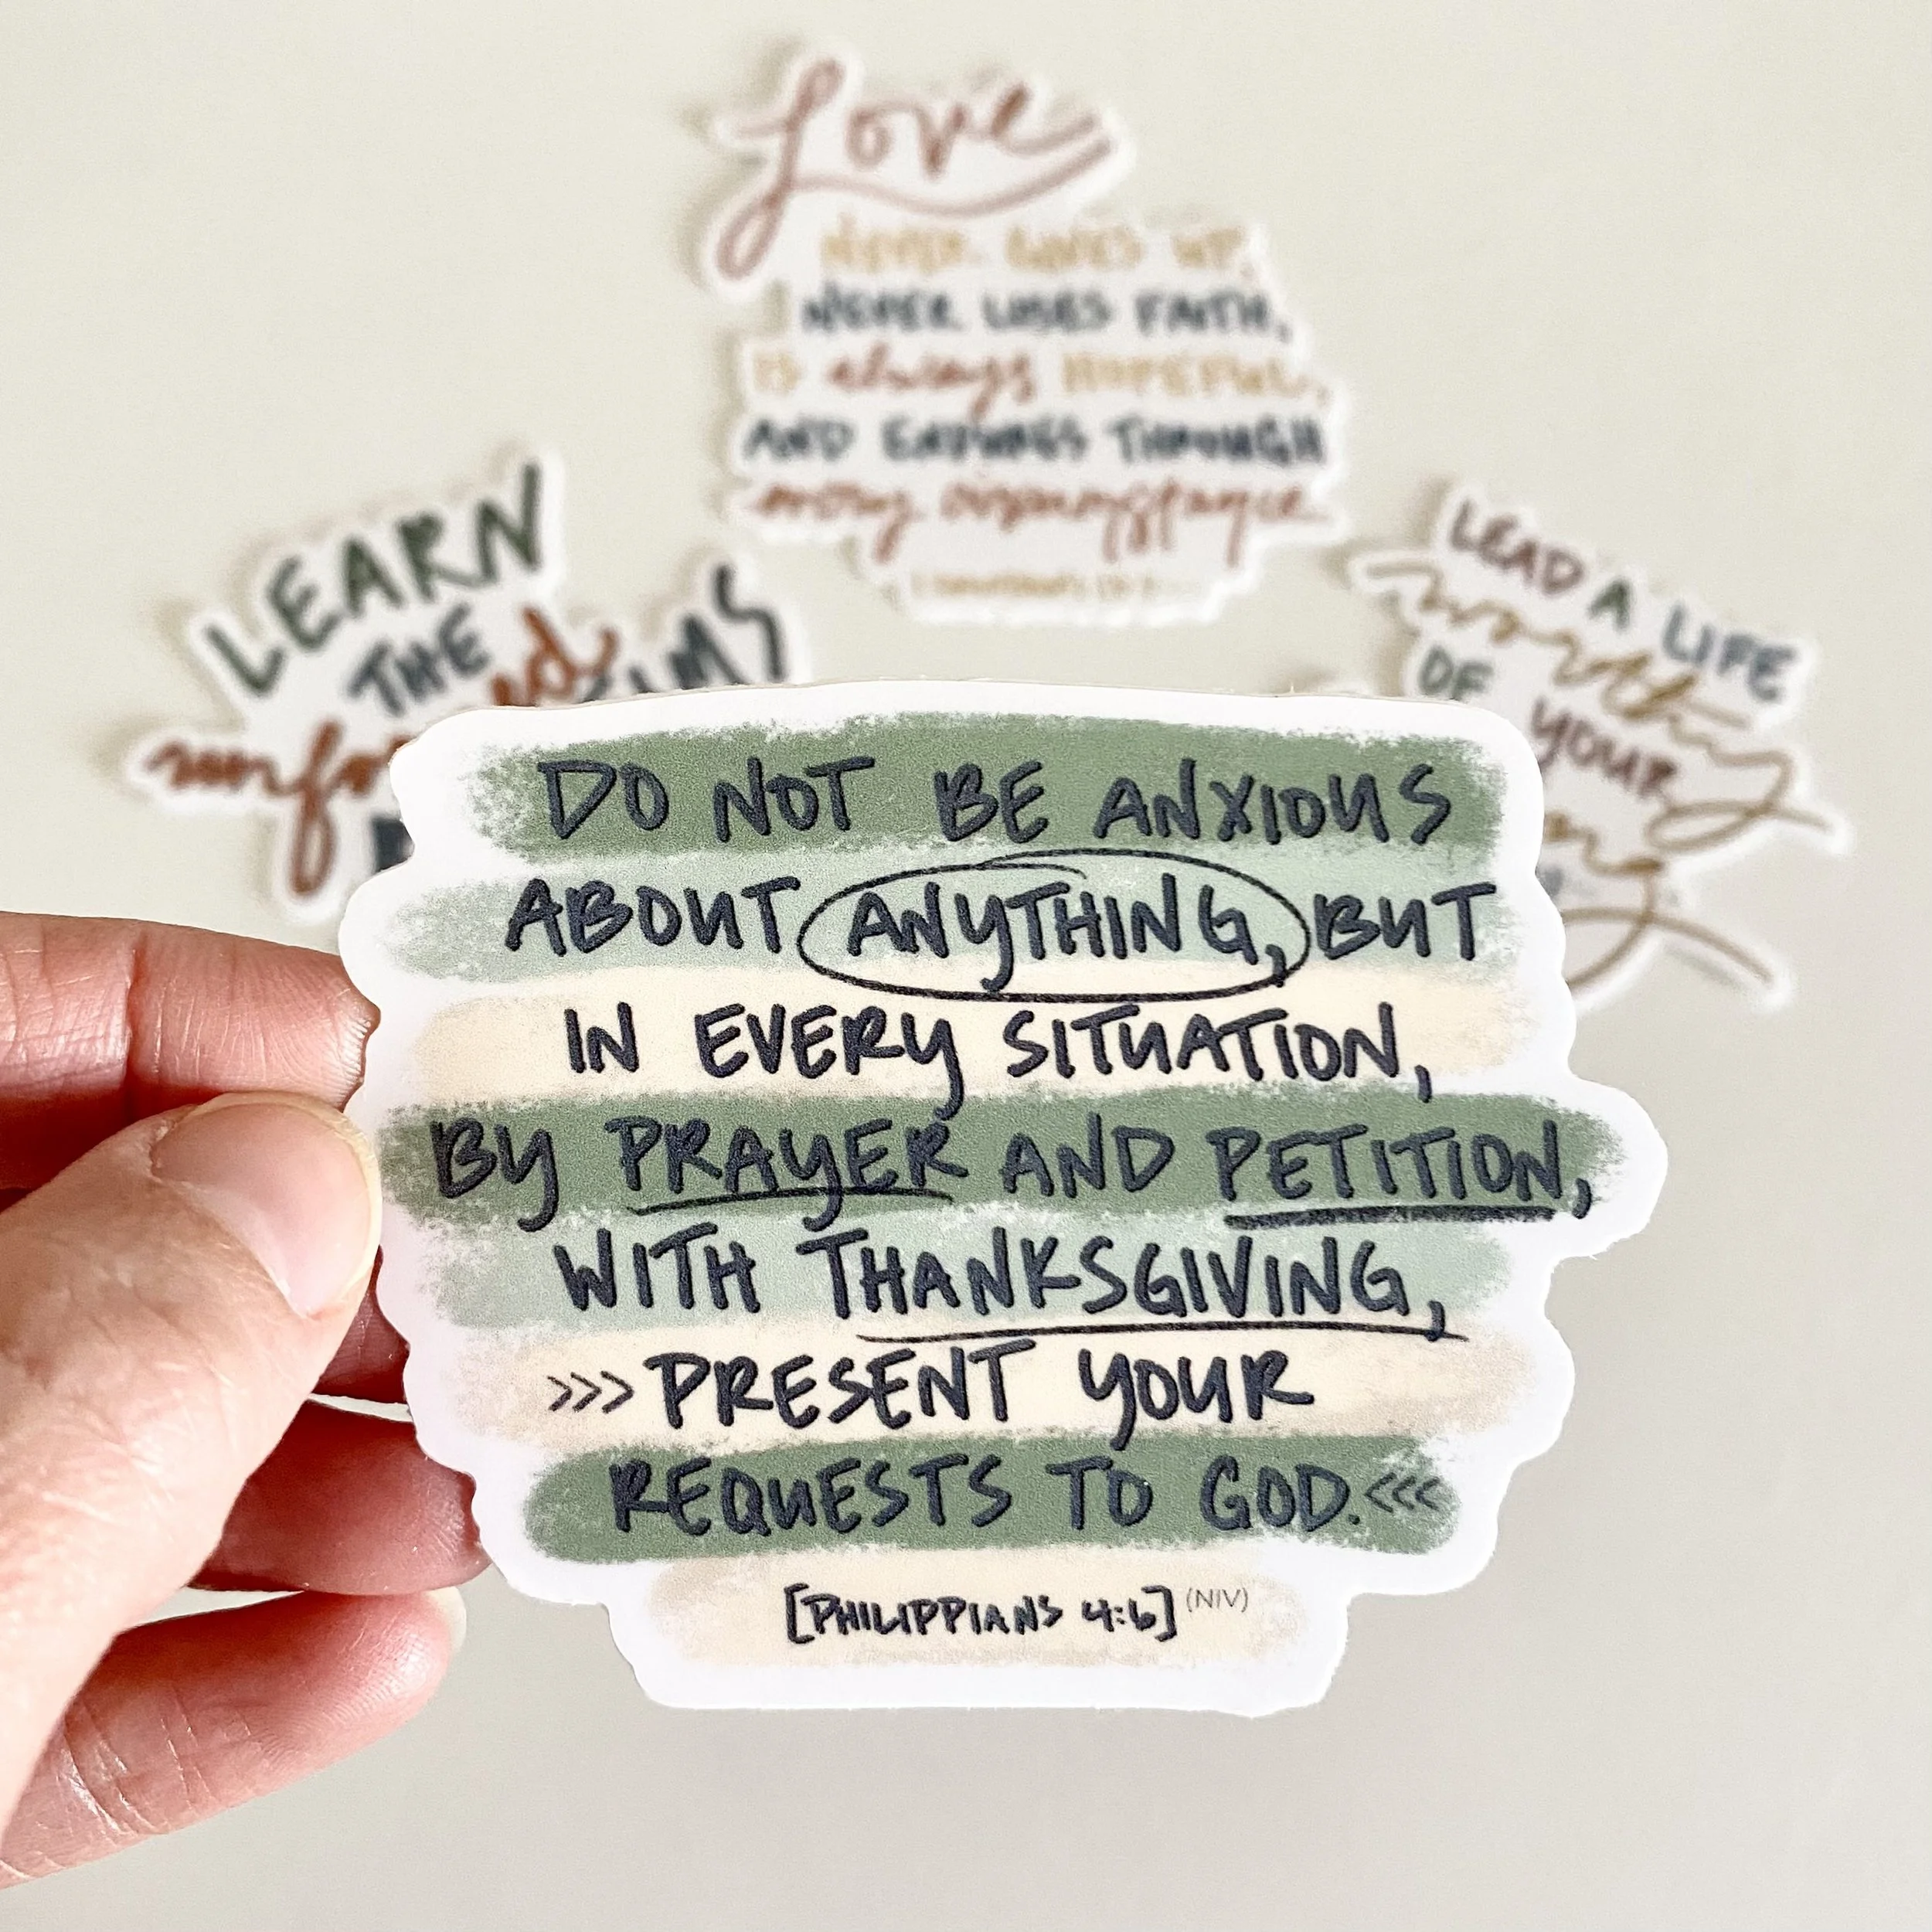 Love
NEVER GIVES UP,
NEVER LOSES FAITH,
IS always HOPEFUL,
AND ENDURES THROUGH
every circumstance.
LEARN
THE
LEAD A LIFE
worthy
OF YOUR
DO NOT BE ANXIOUS
ABOUT ANYTHING, BUT
IN EVERY SITUATION,
BY PRAYER AND PETITION,
WITH THANKSGIVING,
>>> PRESENT YOUR
REQUESTS TO GOD. <<<
[PHILIPPIANS 4:6] (NIV)